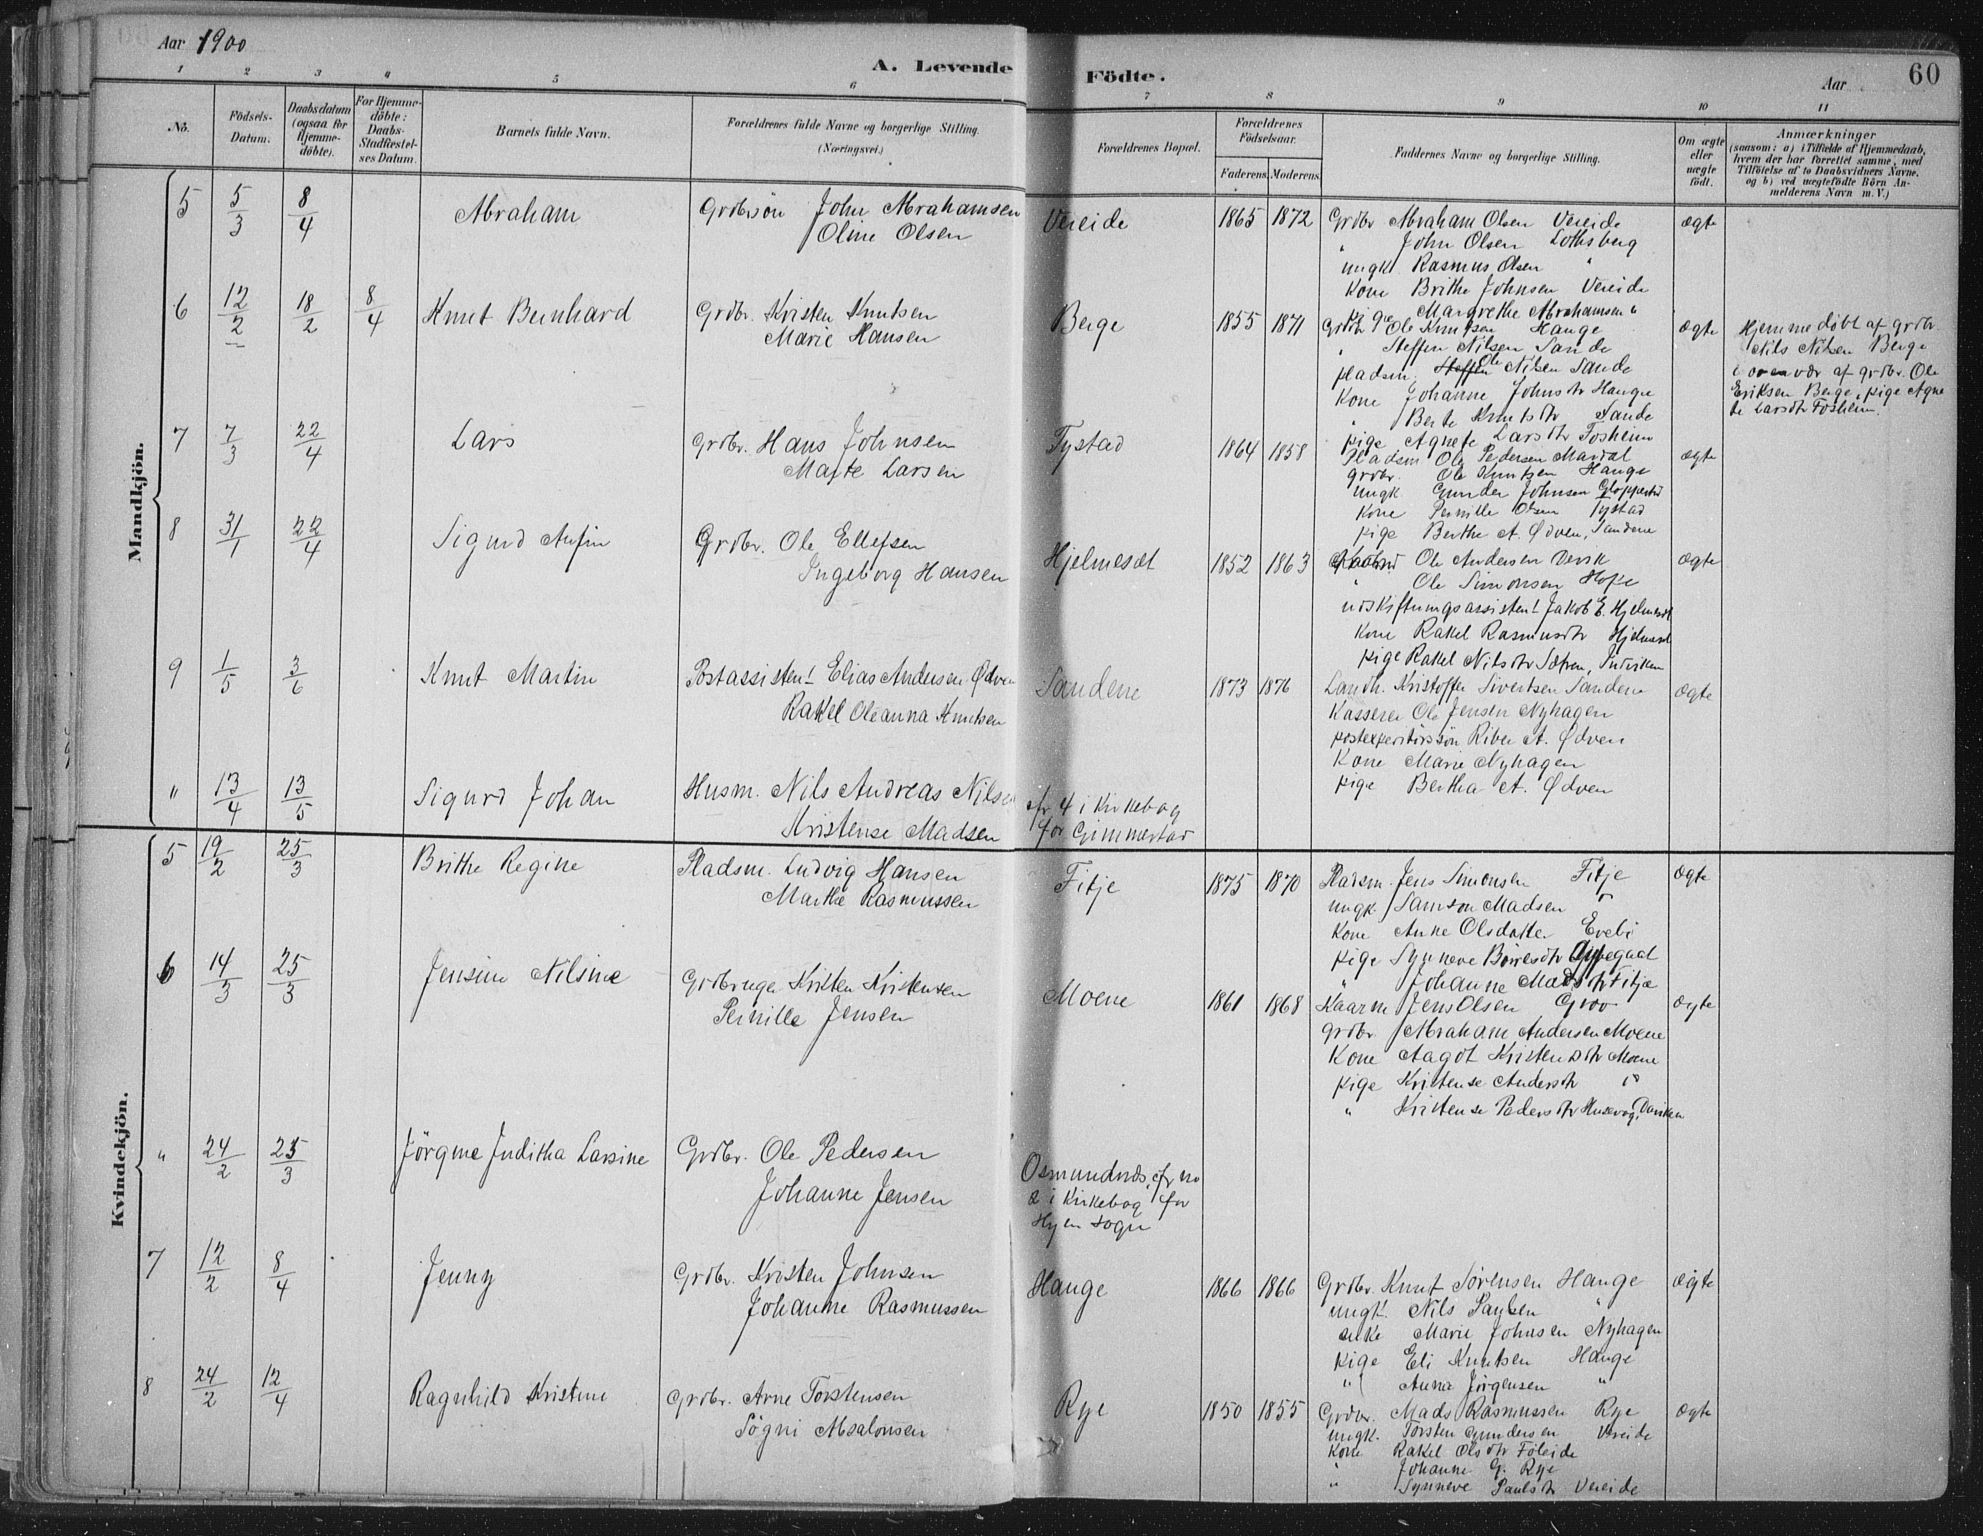 Aar 1900
A. Levende Födte.
Aar
60
1 2 3 4 5 6 7 8 9 10 11
No.
Födsels-Datum.
Daabsdatum (ogsaa for Hjemme-döbte).
For Hjemme-döbte: Daabs-Stadfæstel-ses Datum.
Barnets fulde Navn.
Forældrenes fulde Navne og borgerlige Stilling. (Næringsvei.)
Forældrenes Bopæl.
Forældrenes Födselsaar.
Faderens. Moderens.
Faddernes Navne og borgerlige Stilling.
Om ægte eller uægte födt.
Anmærkninger
(saasom: a) i Tilfælde af Hjemmedaab, hvem der har forrettet samme, med Tilföielse af to Daabsvidners Navne, og b) ved uægtefödte Börn An-melderens Navn m. V.)
Mandkjön.
5 5/3 8/4 Abraham Grdbrsøn John Abrahamsen Vereide 1865 1872 Grdbr Abraham Olsen Vereide ægte
Oline Olsen
" John Olsen Lothsberg
ungk Rasmus Olsen "
Kone Brithe Johnsen Vereide
pige Margrethe Abrahamsen "
6 12/2 18/2 8/4 Knut Bernhard Grdbr. Kristen Knutsen Berge 1855 1871 Grdbr Ole Knutsen Hauge ægte
Marie Hansen
" Steffen Nilsen Sande
pladsm. Steffen Ole Nilsen Sande
Kone Johanne Johnsdtr Hauge
" Berte Knutsdtr Sande
pige Agnete Larsdtr Fosheim
Hjemmedøbt af grdbr.
Nils Nilsen Berge
i overvær af grdbr. Ole
Eriksen Berge, pige Agne
te Larsdtr Fosheim.
7 7/3 22/4 Lars Grdbr. Hans Johnsen Tystad 1864 1858 Pladsm Ole Pedersen Mardal ægte
Marte Larsen
grdbr. Ole Knutsen Hauge
ungk Gunder Johnsen Gloppestad
Kone Pernille Olsen Tystad
pige Berthe A. Ødven, Sandene
8 31/1 22/4 Sigurd Anfin Grdbr. Ole Ellefsen Hjelmeset 1852 1863 Ole Andersen ægte
Ingeborg Hansen
" Ole Simonsen Hope
udskiftningsassistent Jakob E. Hjelmeset
Kone Rakel Rasmusdtr Hjelmeset
pige Rakel Nilsdtr Sætren, Indviken
9 1/5 3/6 Knut Martin Postassistent Elias Andersen Ødven Sandene 1873 1876 Landh. Kristoffer Sivertsen Sandene ægte
Rakel Oleanna Knutsen
Kasserer Ole Jensen Nyhagen
postexpeditørssøn Riber A. Ødven
Kone Marie Nyhagen
pige Bertha A. Ødven
" 13/4 13/5 Sigurd Johan Husm. Nils Andreas Nilsen cfr 4 i Kirkebog
Kristense Madsen for Gimmestad
Kvindekjön.
5 19/2 25/3 Brithe Regine Pladsm. Ludvig Hansen Fitje 1875 1870 Pladsm. Jens Simonsen Fitje ægte
Marthe Rasmussen
ungk. Samson Madsen "
Kone Anne Olsdatter Evebø
pige Synneve Børresdtr Appegaal
" Johanne Madsdtr Fitje
6 14/3 25/3 Jensine Nilsine Grdbruger Kristen Kristensen Moene 1861 1868 Kaarm Jens Olsen Groo ægte
Pernille Jensen
grdbr Abraham Andersen Moene
Kone Aagot Kristensdtr Moene
pige Kristense Andersdtr "
" Kristense Pedersdtr Husevog, Daviken
" 24/2 25/3 Jörgine Juditha Larsine Grdbr. Ole Pedersen Osmundnæs, cfr no
Johanne Jensen 2 i Kirkebog for
Hyen sogn
7 12/2 8/4 Jenny Grdbr. Kristen Johnsen Hauge 1866 1866 Grdbr. Knut Sørensen Hauge ægte
Johanne Rasmussen
ungk. Nils Paulsen "
enke Marie Johnsen Nyhagen
pige Eli Knutsen Hauge
" Anna Jørgensen "
8 24/2 12/4 Ragnhild Kristine Grdbr. Arne Torstensen Rye 1850 1855 Grdbr. Mads Rasmussen Rye ægte
Søgni Absalonsen
ungk. Torsten Gundersen Vereide
Kone Rakel Olsdtr Föleide
" Johanne G. Rye
" Synneve Paulsdtr Vereide